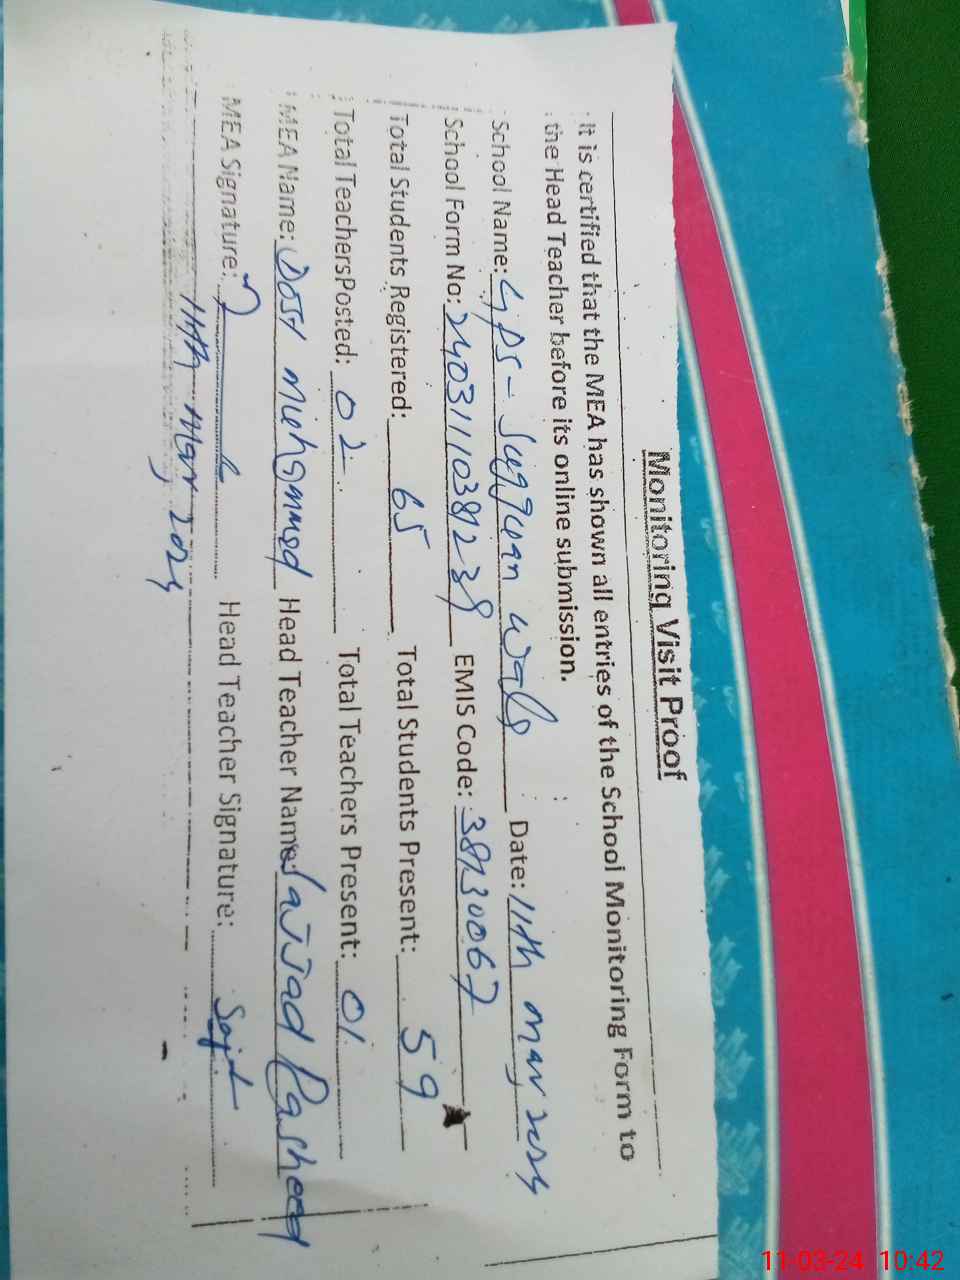 Monitoring Visit Proof
It is certified that the MEA has shown all entries of the School Monitoring Form to
the Head Teacher before its online submission.
School Name: GPS - Sugguan wala Date: 11th Mar, 2024
School Form No: 2403110381238 EMIS Code: 38130067
Total Students Registered: 65 Total Students Present: 59
Total TeachersPosted: 02 Total Teachers Present: 01
MEA Name: Dost Muhammad Head Teacher Name: Sajjad Rasheed
MEA Signature: Head Teacher Signature: Sajd
11th Mar, 2024
11-03-24 10:42